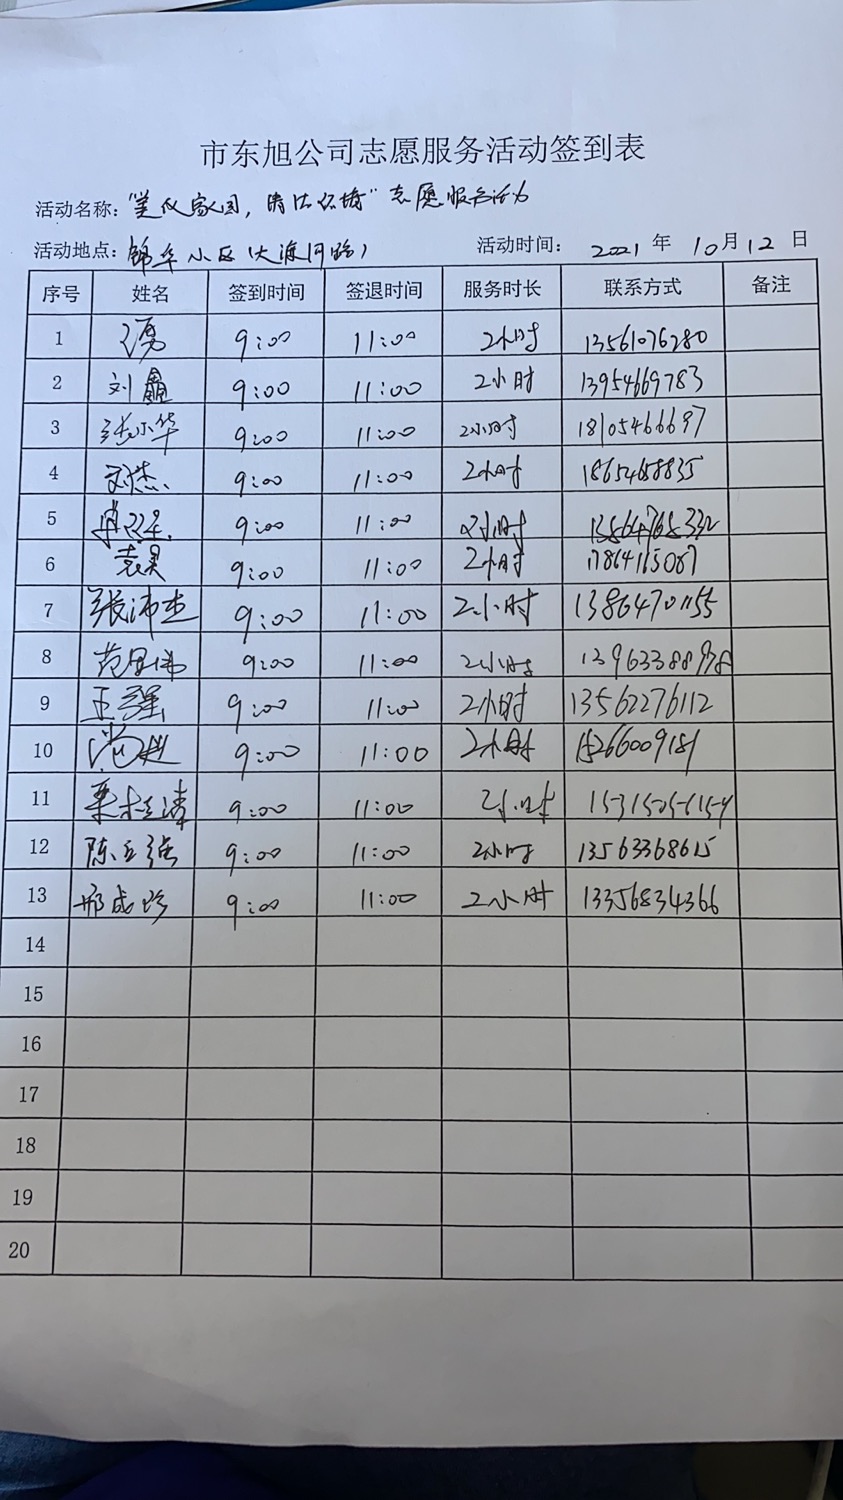 市东旭公司志愿服务活动签到表
活动名称: 志愿服务活动
活动地点: 锦华小区(大渡河路)
活动时间: 2021 年 10 月 12 日
序号 姓名 签到时间 签退时间 服务时长 联系方式 备注
1 9:00 11:00 2小时 13561076280
2 刘鑫 9:00 11:00 2小时 13954669783
3 张小华 9:00 11:00 2小时 18105466697
4 刘杰 9:00 11:00 2小时
5 9:00 11:00 2小时 13564765332
6 袁昊 9:00 11:00 2小时 17864165087
7 张沛杰 9:00 11:00 2小时 13864701155
8 9:00 11:00 2小时
9 王强 9:00 11:00 2小时 13562276112
10 9:00 11:00 2小时 15266009181
11 9:00 11:00 2小时
12 陈立强 9:00 11:00 2小时 13563368615
13 邢成珍 9:00 11:00 2小时 13356834366
14
15
16
17
18
19
20